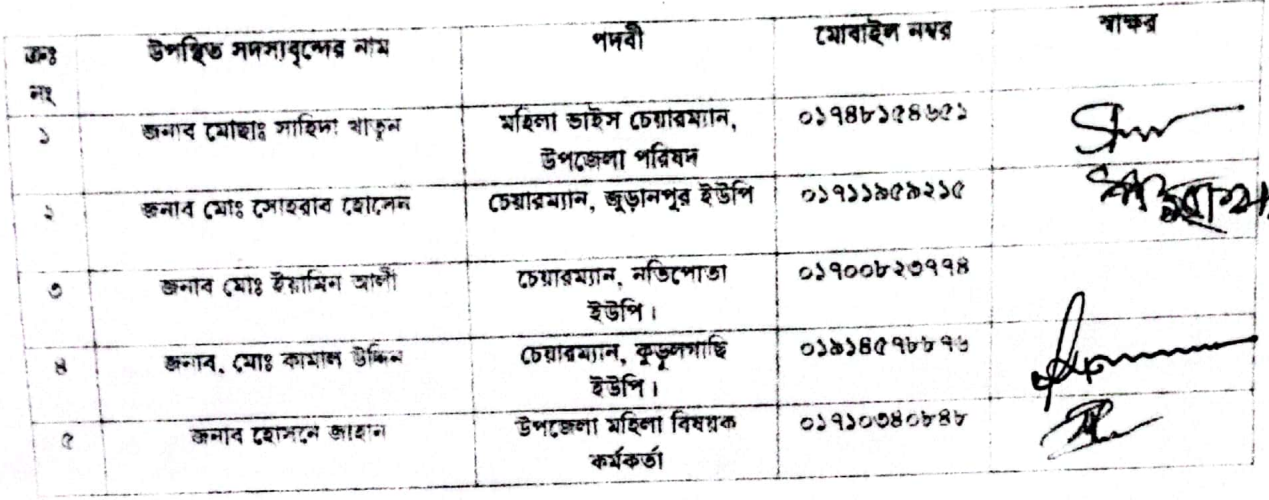 ক্রঃ নং উপস্থিত সদস্যবৃন্দের নাম পদবী মোবাইল নম্বর স্বাক্ষর
১ জনাব মোছাঃ সাহিদা খাতুন মহিলা ভাইস চেয়ারম্যান, ০১৭৪৮১৫৪৬৫১
উপজেলা পরিষদ
২ জনাব মোঃ সোহরাব হোসেন চেয়ারম্যান, জুড়ানপুর ইউপি ০১৭১১৯৫৯২১৫
৩ জনাব মোঃ ইয়ামিন আলী চেয়ারম্যান, নতিপোতা ০১৭০০৮২৩৭৭৪
ইউপি।
৪ জনাব, মোঃ কামাল উদ্দিন চেয়ারম্যান, কুড়ুলগাছি ০১৯১৪৫৭৮৮৭৬
ইউপি।
৫ জনাব হোসনে জাহান উপজেলা মহিলা বিষয়ক ০১৭১০৩৪০৮৪৮
কর্মকর্তা